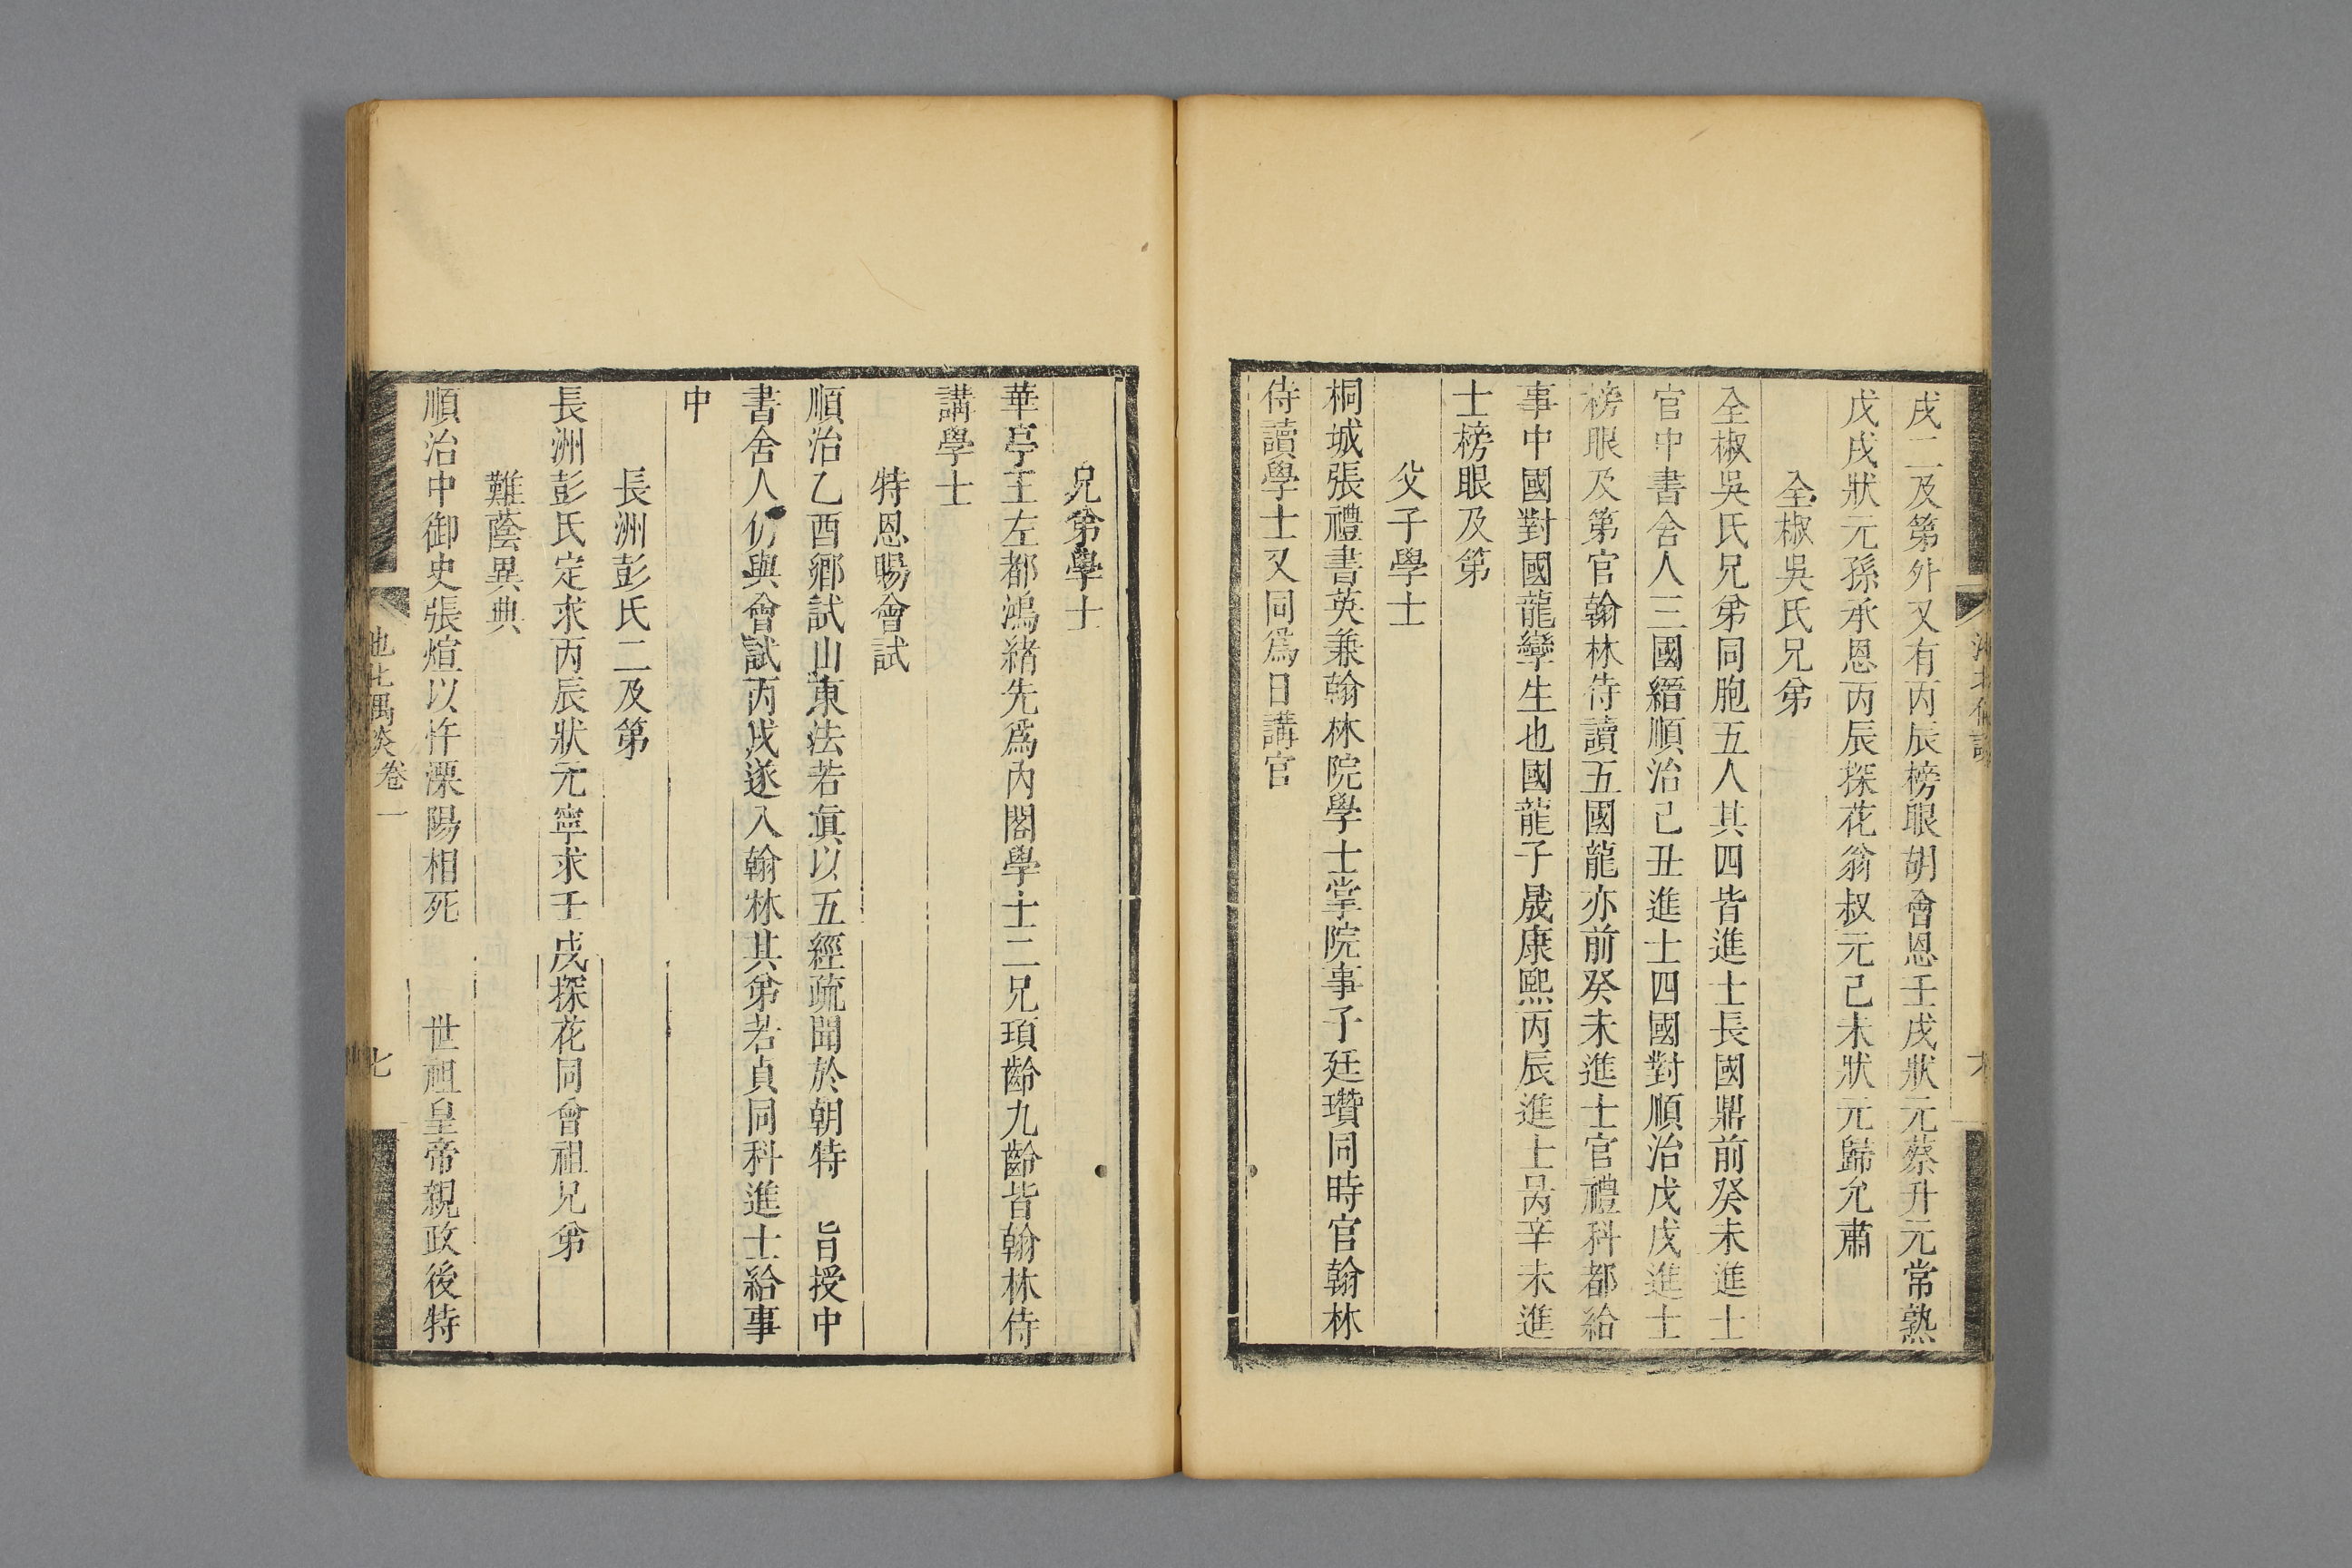 戌二及第外又有丙辰榜眼胡會恩壬戌狀元蔡升元常熟
戊戌狀元孫承恩丙辰探花翁叔元己未狀元歸允肅
全椒吳氏兄弟
全椒吳氏兄弟同胞五人其四皆進士長國鼎前癸未進士
官中書舍人三國縉順治己丑進士四國對順治戊戌進士
榜眼及第官翰林侍讀五國龍亦前癸未進士官禮科都給
事中國對國龍孿生也國龍子晟康熙丙辰進士昺辛未進
士榜眼及第
父子學士
桐城張禮書英兼翰林院學士掌院事子廷瓚同時官翰林
侍讀學士又同爲日講官
兄弟學士
華亭王左都鴻緒先爲內閣學士二兄頊齡九齡皆翰林侍
講學士
特恩賜會試
順治乙酉鄉試山東法若眞以五經疏聞於朝特 旨授中
書舍人仍與會試丙戌遂入翰林其弟若貞同科進士給事
中
長洲彭氏二及第
長洲彭氏定求丙辰狀元寧求壬戌探花同會祖兄弟
難蔭異典
順治中御史張煊以忤溧陽相死 世祖皇帝親政後特
池北偶談 卷一 七